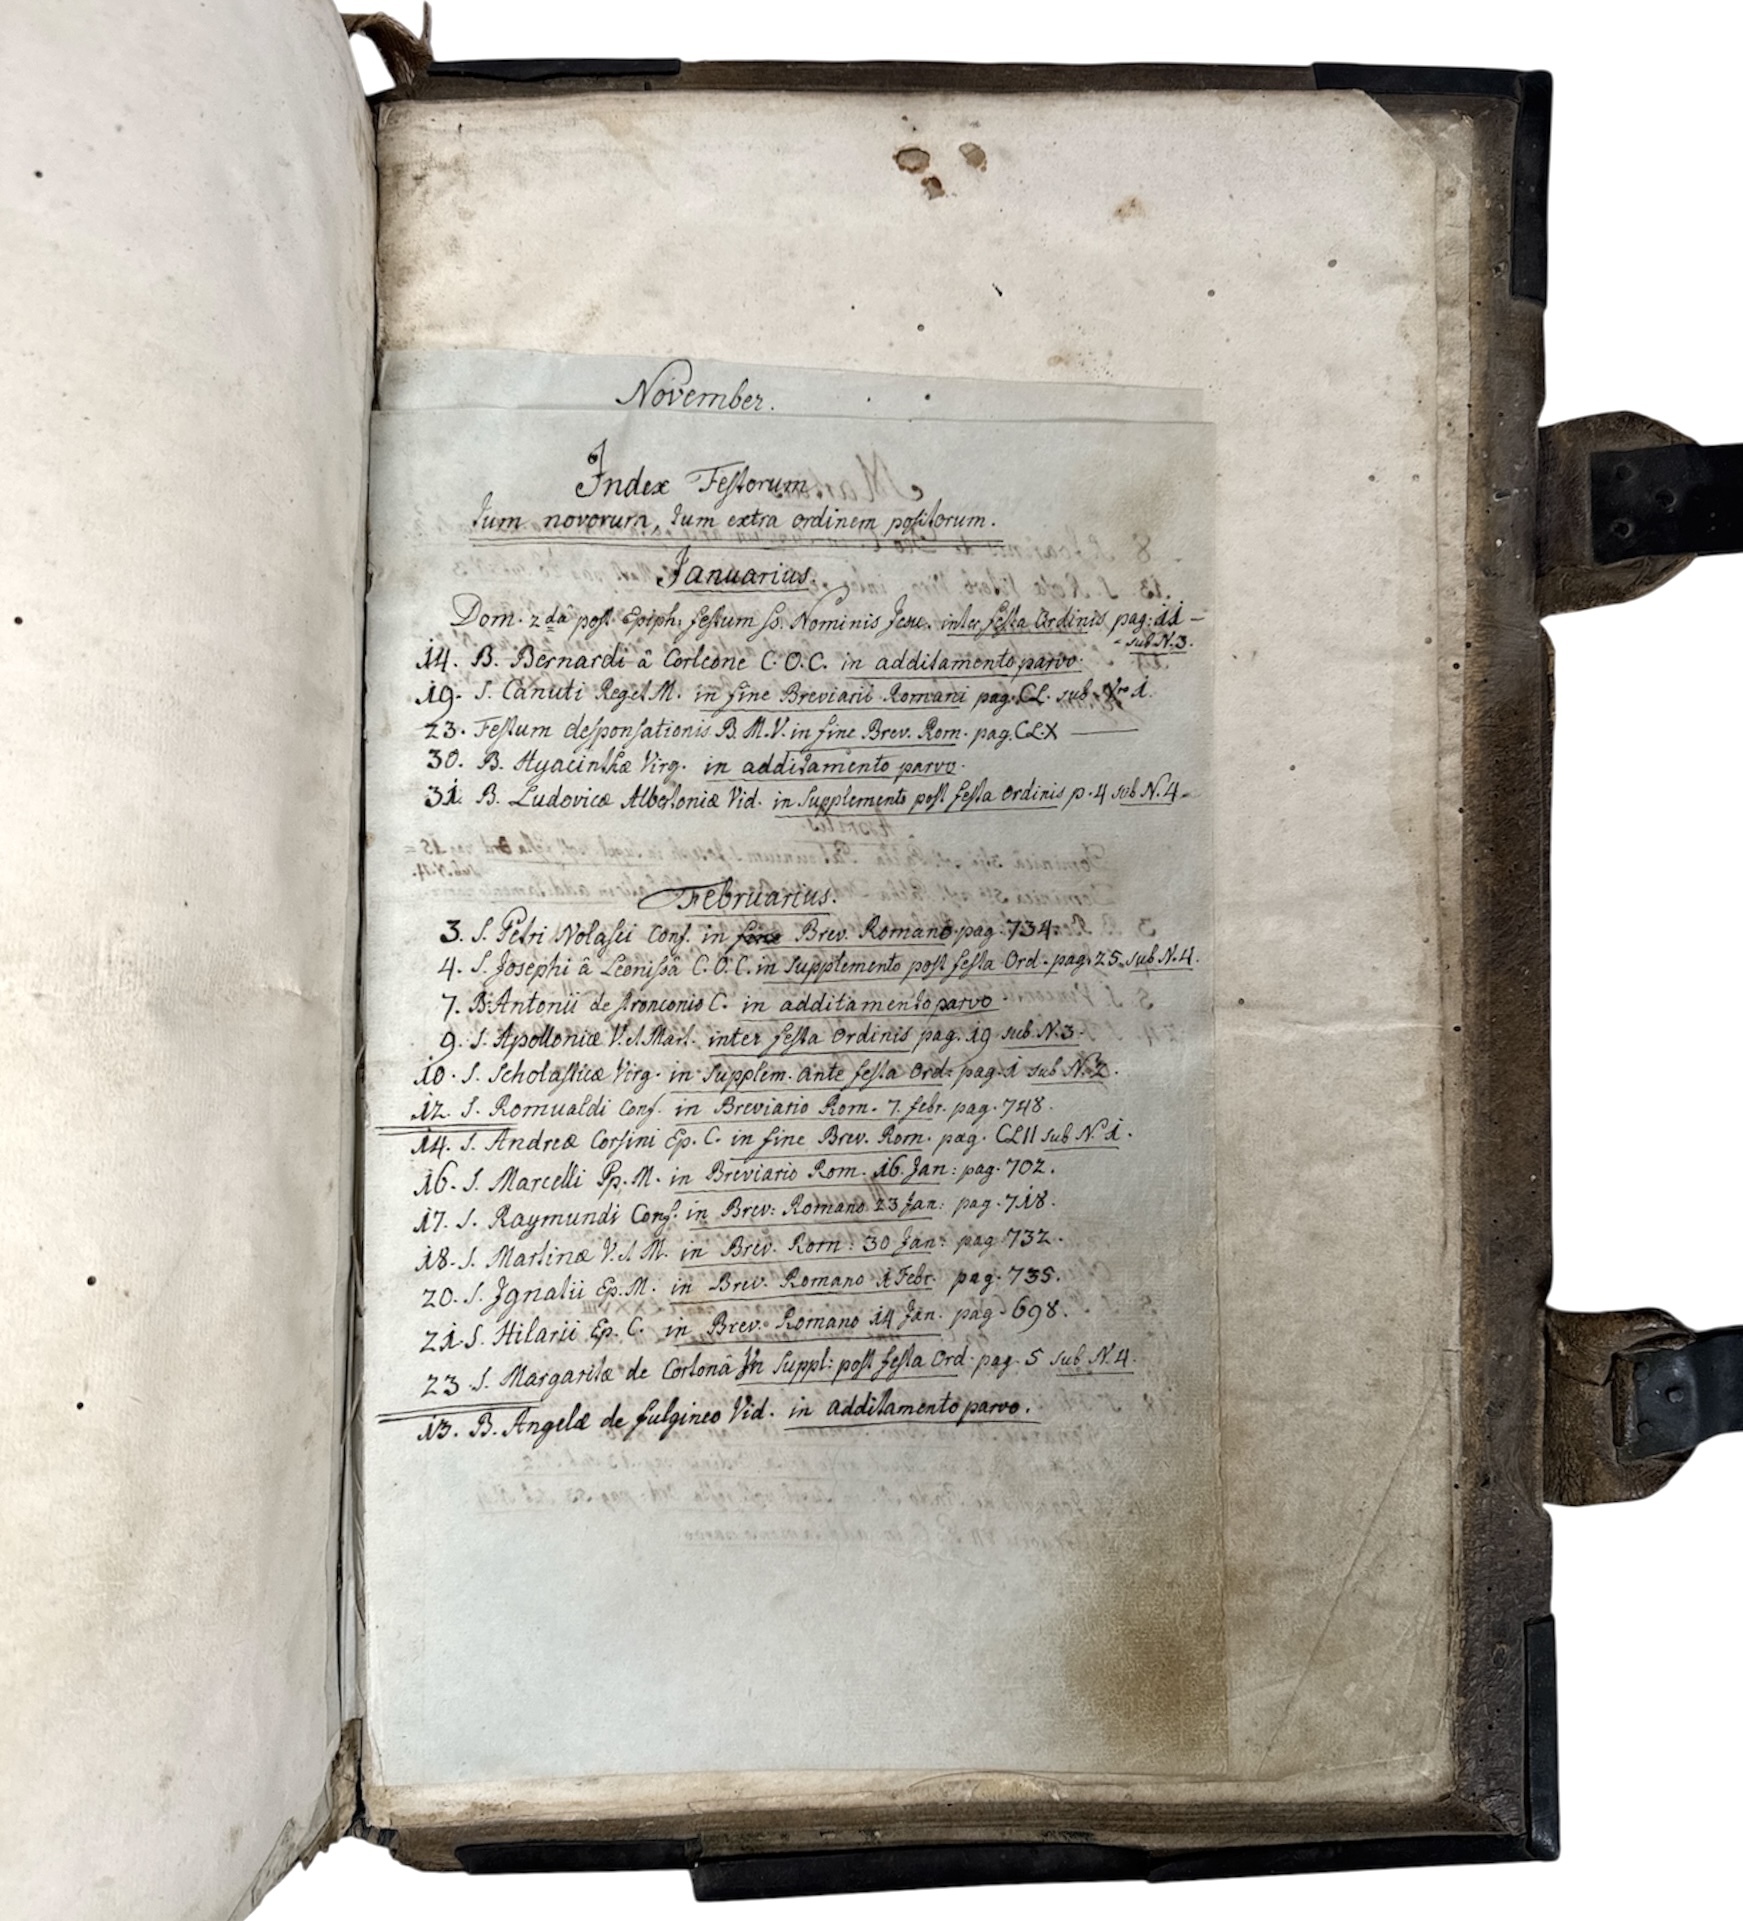 November.
Index Festorum
tum novorum, tum extra ordinem positorum.
Januarius.
Dom. 2dâ post Epiph: festum SS. Nominis Jesu. inter festa Ordinis pag: 11 -
- sub N. 3.
14. B. Bernardi â Corleone C. O. C. in additamento parvo.
19. S. Canuti Reg. et M. in fine Breviarii Romani pag. CL. sub Nro 1.
23. Festum desponsationis B. M. V. in fine Brev. Rom. pag. CLX
30. B. Hyacinthæ Virg. in additamento parvo.
31. B. Ludovicæ Albertoniæ Vid. in Supplemento post festa Ordinis p. 4 sub N. 4.
Februarius.
3. S. Petri Nolasci Conf. in fine Brev. Romano pag. 734.
4. S. Josephi â Leonissâ C. O. C. in supplemento post festa Ord. pag. 25. sub N. 4.
7. B. Antonii de Stronconio C. in additamento parvo
9. S. Apolloniæ V. et Mart. inter festa Ordinis pag. 19 sub. N. 3.
10. S. Scholasticæ Virg. in Supplem. ante festa Ord: pag. 1 sub N. 2.
12. S. Romualdi Conf. in Breviario Rom. 7. febr. pag. 748.
14. S. Andreæ Corsini Ep. C. in fine Brev. Rom. pag. CLII sub No 1.
16. S. Marcelli Pp. M. in Breviario Rom. 16. Jan: pag. 702.
17. S. Raymundi Conf. in Brev: Romano 23 Jan: pag. 718.
18. S. Martinæ V. et M. in Brev. Rom: 30 Jan: pag 732.
20. S. Ignatii Ep. M. in Brev. Romano 1 Febr. pag. 735.
21. S. Hilarii Ep. C. in Brev. Romano 14 Jan. pag. 698.
23. S. Margaritæ de Cortonâ in Suppl: post festa Ord. pag. 5 sub N. 4.
13. B. Angelæ de fulgineo Vid. in additamento parvo.